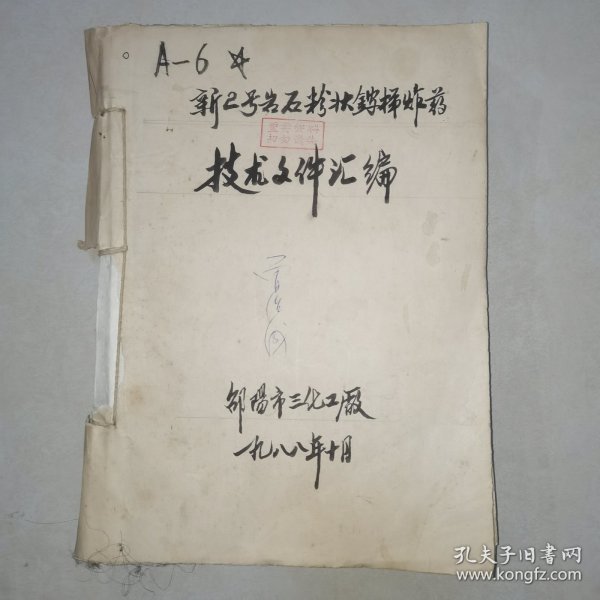 A-6
新2号岩石粉状銨梯炸药
技术文件汇编
邵陽市三化工廠
一九八八年十月
孔夫子旧书网
www.kongfz.com